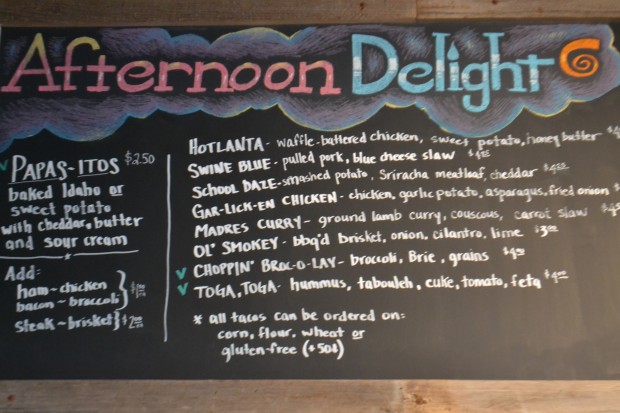 Afternoon Delight
PAPAS-ITOS $2.50
baked Idaho or
sweet potato
with cheddar, butter
and sour cream
Add:
ham-chicken
bacon-broccoli
steak-brisket} $2.00
HOTLANTA- waffle-battered chicken, sweet potato, honey butter
SWINE BLUE- pulled pork, blue cheese slaw
SCHOOL DAZE- smashed potato, Sriracha meatloaf, cheddar
GAR-LICK-EN CHICKEN- chicken, garlic potato, asparagus, fried onion
MADRES CURRY- ground lamb curry, couscous, carrot slaw
OL' SMOKEY- bbq'd brisket, onion, cilantro, lime
CHOPPIN' BROC-O-LAY- broccoli, Brie, grains
TOGA, TOGA- hummus, tabouleh, cuke, tomato, feta
* all tacos can be ordered on:
corn, flour, wheat or
gluten-free (+50¢)